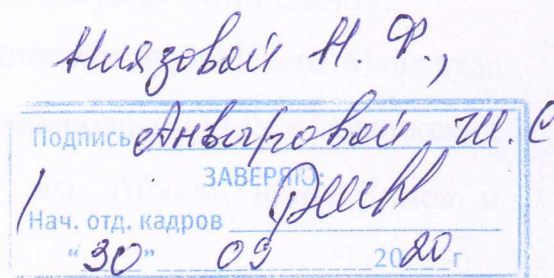 Ниязовой Н. Ф.,
Подпись Анваровой Ш. С
ЗАВЕРЯЮ:
Нач. отд. кадров
"30" 09 2020 г